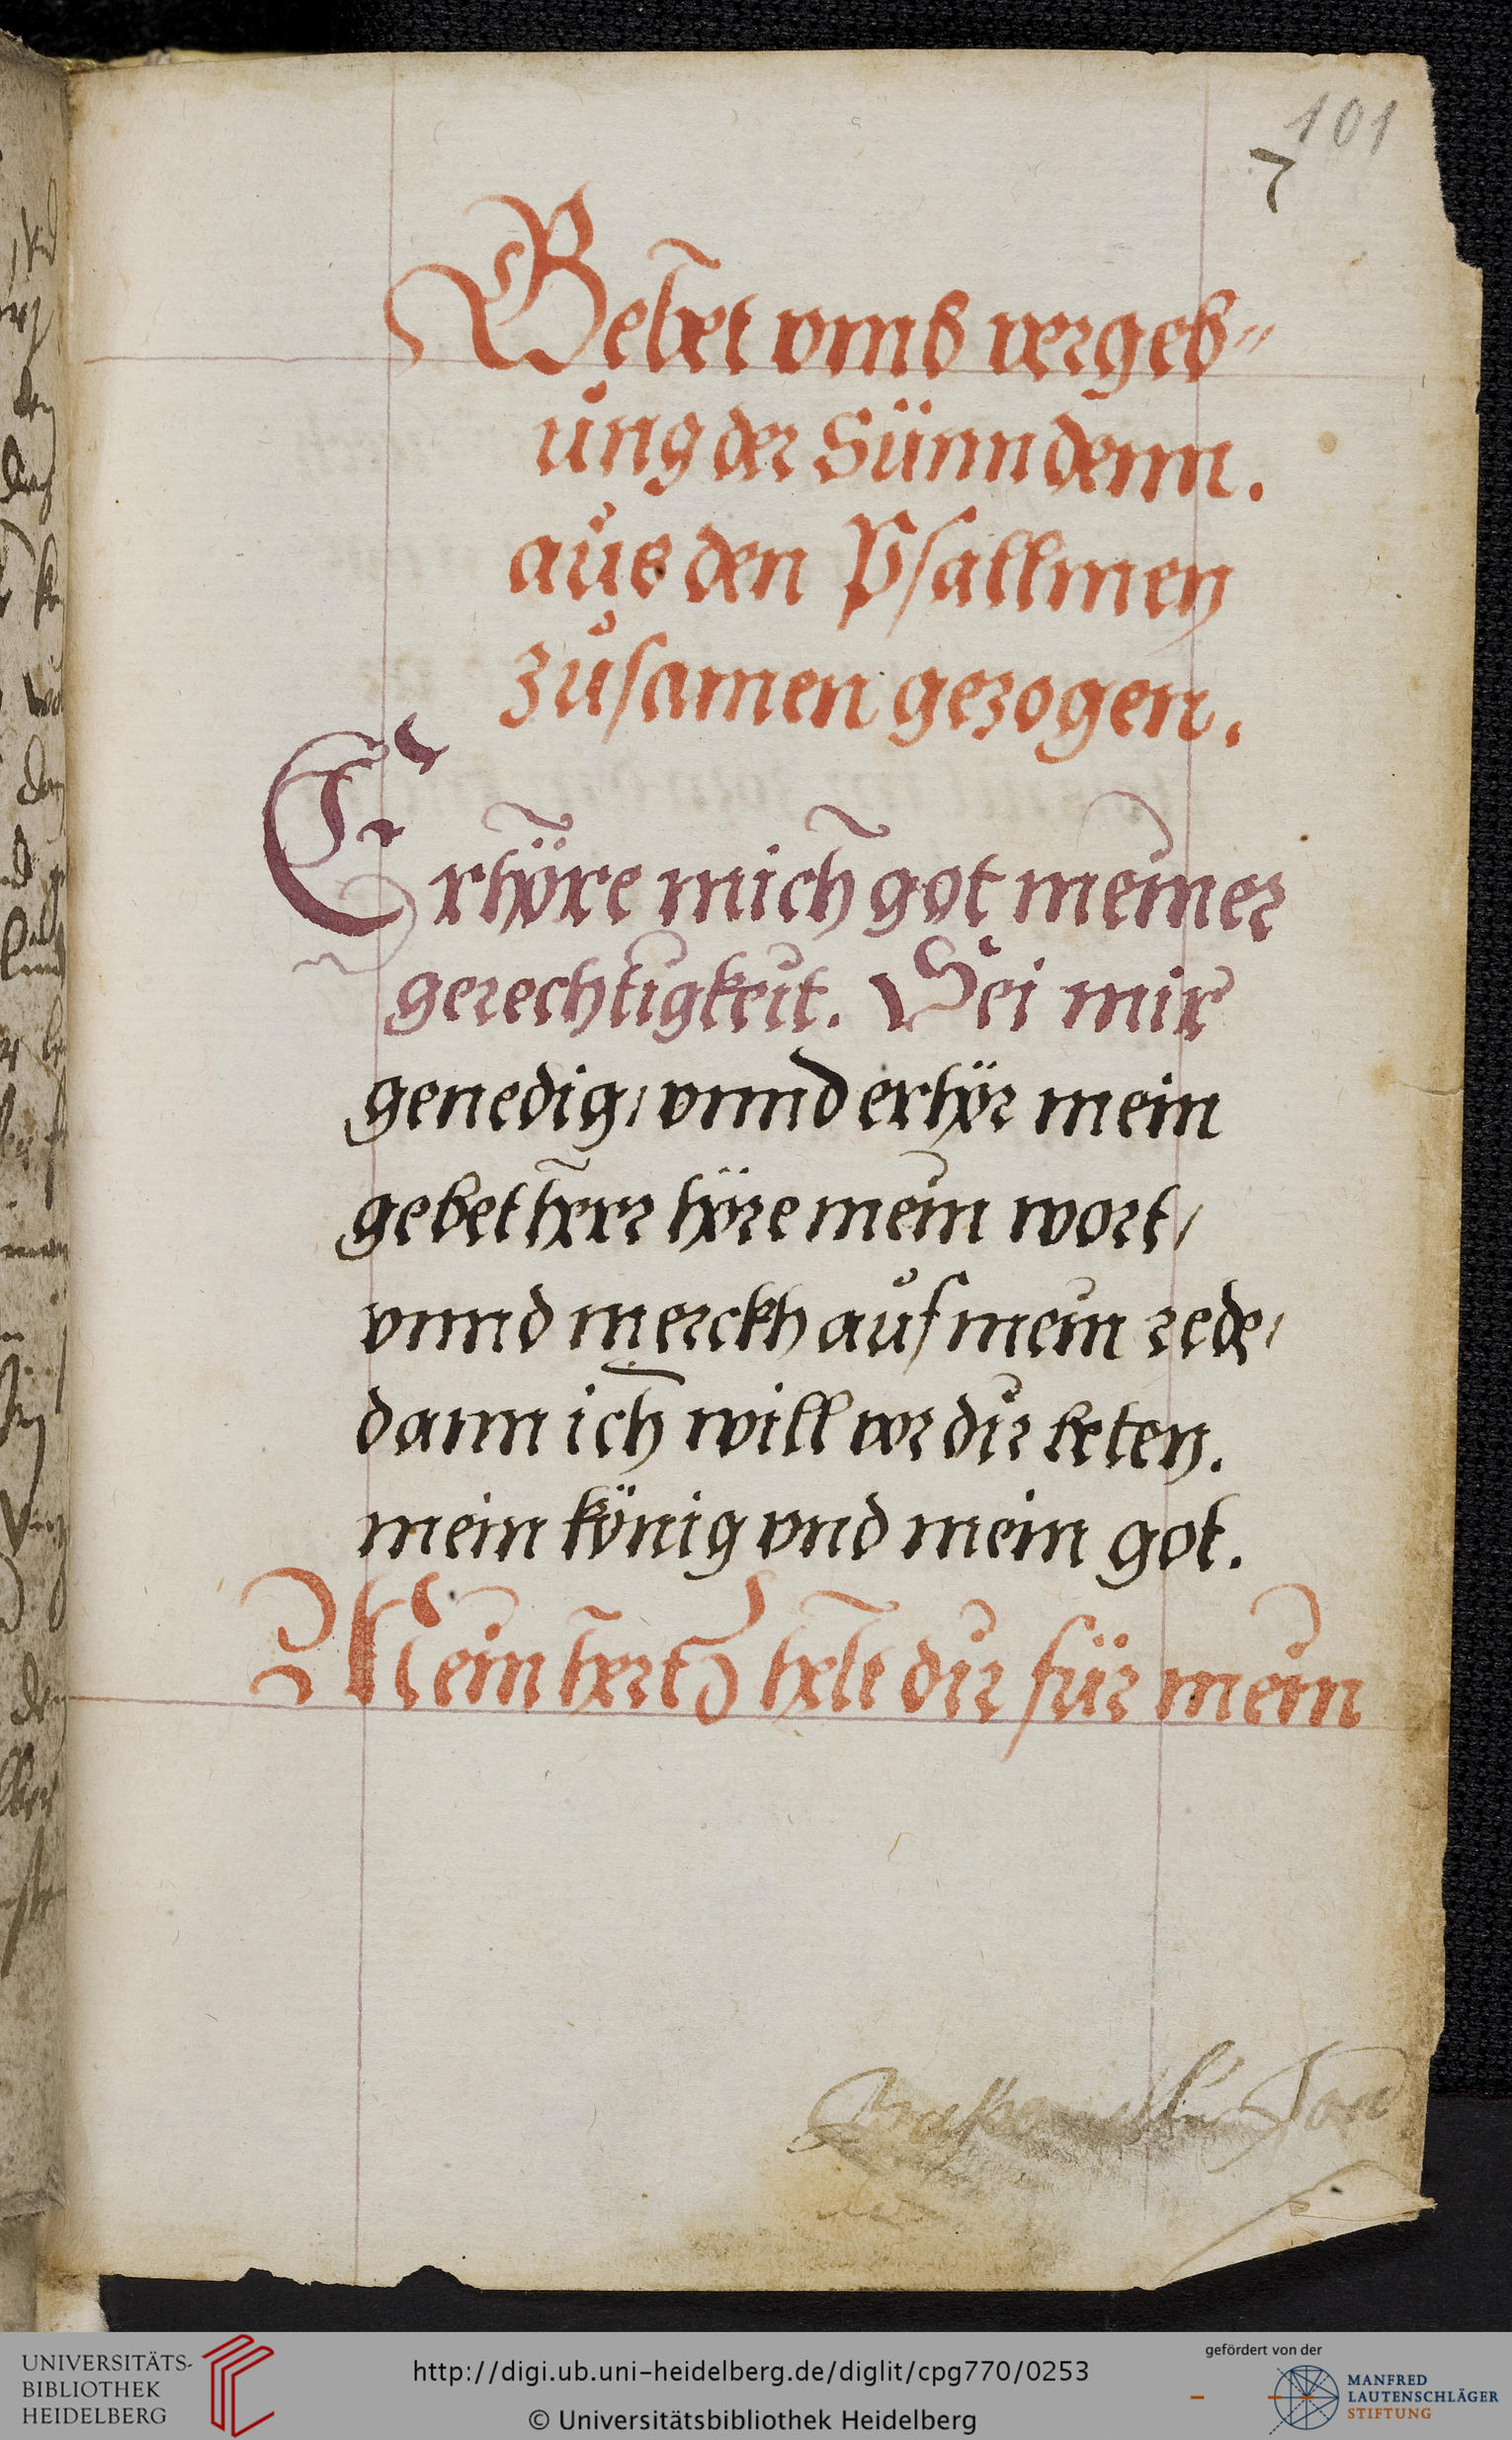 101
7
Gebet vmb vergeb=
ůng der Sünndenn.
aůs den Psallmen
zůsamen gezogen.
Erhöre mich got meiner
gerechtigkeit. Sei mir
genedig/ vnnd erhör mein
gebet herr höre mein wort/
vnnd merckh aůf mein rede/
dann ich will vor dir beten.
mein könig vnd mein got.
Mein hertz helt dir für mein
UNIVERSITÄTS-
BIBLIOTHEK
HEIDELBERG
http://digi.ub.uni-heidelberg.de/diglit/cpg770/0253
© Universitätsbibliothek Heidelberg
gefördert von der
MANFRED
LAUTENSCHLÄGER
STIFTUNG